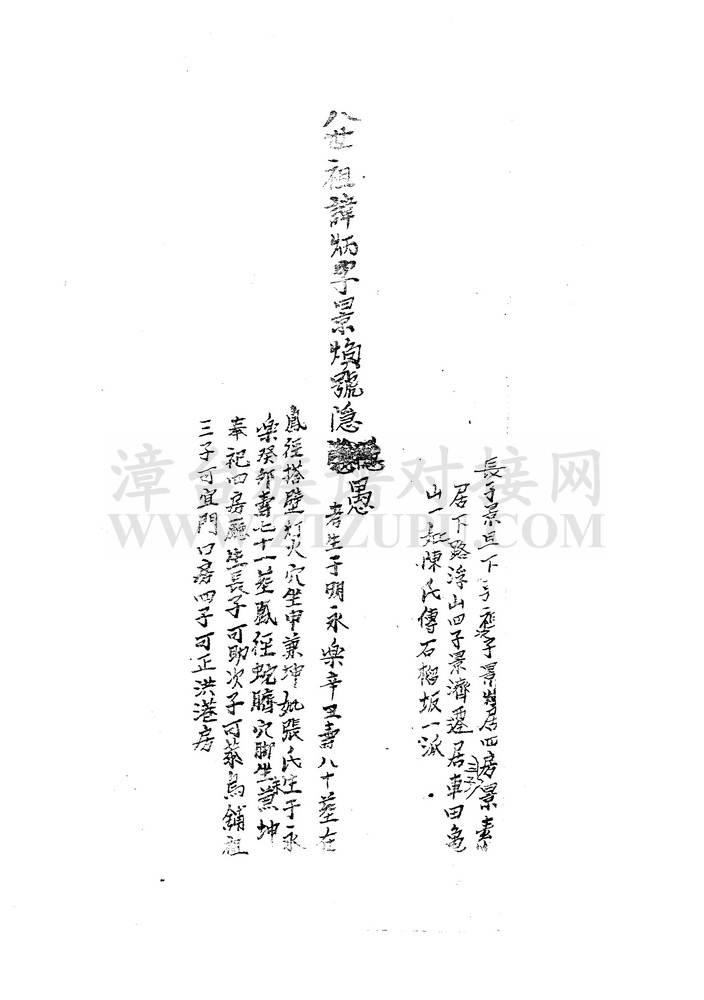 長子景旦下 子 次子景 居四房三子景素
居下路浮山四子景濟遷居車田龜
山一妣陳氏傳石榴坂一派
八世祖諱炳字景煥號隱愚
考生于明永樂辛丑壽八十葬在
鳳徑搭壁灯火穴坐申兼坤妣張氏生于永
樂癸卯壽七十一葬鳳徑蛇臍穴脚坐未兼坤
奉祀四房廳生長子可助次子可蔡烏鋪祖
三子可宜門口房四子可正洪港房
漳台族谱对接网
WWW.ZTZUPU.COM